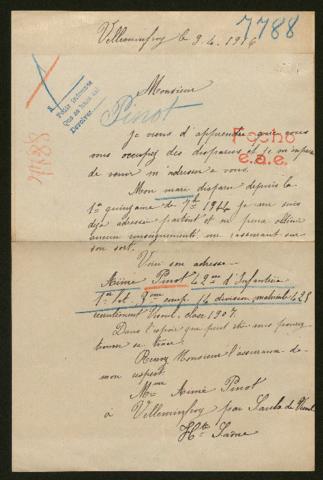 Villeminfroy le 9.4.1916
7788
Monsieur
Pinot
Je viens d'apprendre que vous
vous occupez des disparus et je m'empresse
de venir m'adresser a vous.
Mon mari disparu depuis la
1e quinzaine de 7bre 1914 je me suis
déja adresser partout et ne peux obtenir
aucun renseignement me rassurant sur
son sort.
Voici son adresse
Aimé Pinot 42me d'Infanterie
1er bat. 3me comp. 14 division, matricule 425
recrutement Vesoul, classe 1907.
Dans l'espoir que peut etre vous pourrez
Recevez Monsieur l'assurance de
mon respect.
Mme Aimé Pinot
à Villeminfroy par Saulx de Vesoul
Hte Saône
Fecho
e.a.e.